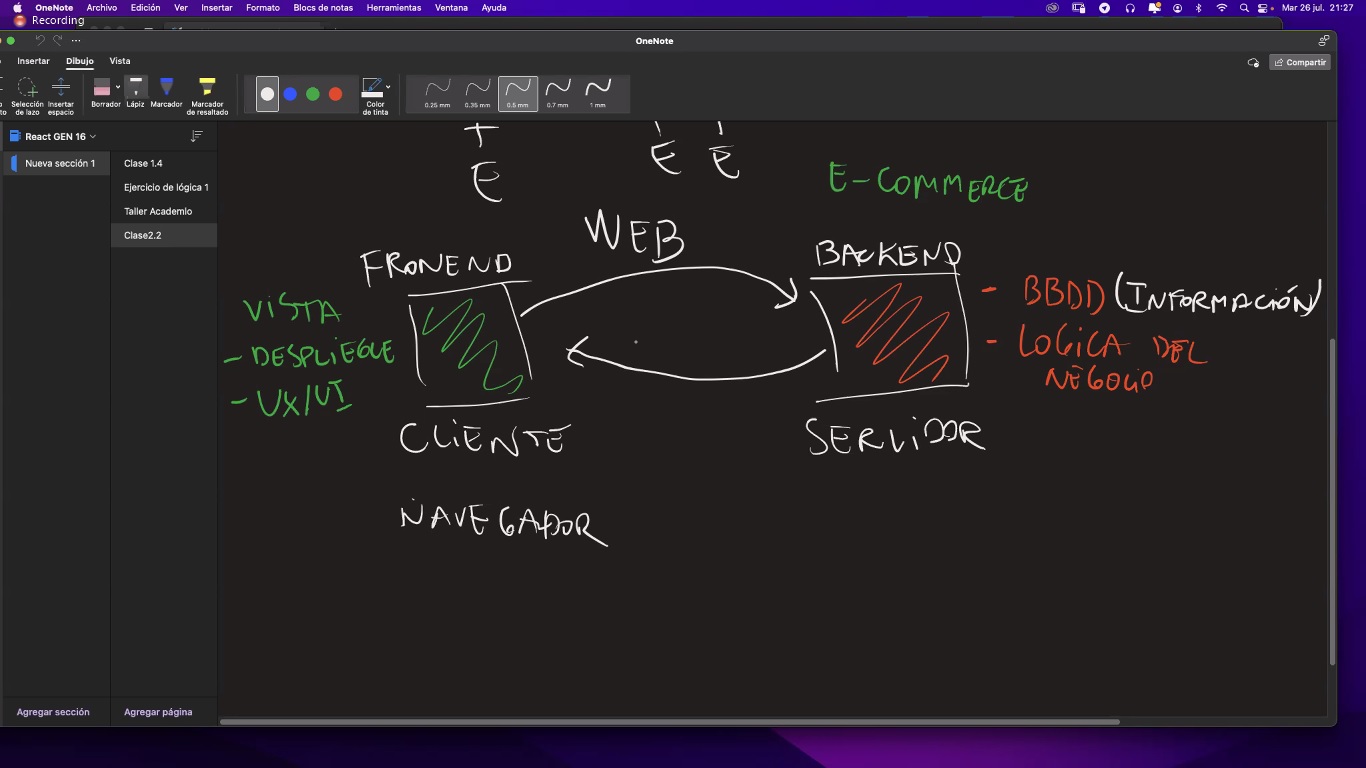 OneNote Archivo Edición Ver Insertar Formato Blocs de notas Herramientas Ventana Ayuda
Mar 26 jul. 21:27
Recording
OneNote
Insertar Dibujo Vista
Compartir
Selección de lazo
Insertar espacio
Borrador
Lápiz
Marcador
Marcador de resaltado
Color de tinta
0.25 mm
0.35 mm
0.5 mm
0.7 mm
1 mm
React GEN 16
Nueva sección 1
Clase 1.4
Ejercicio de lógica 1
Taller Academlo
Clase2.2
E
E E
E-COMMERCE
WEB
FRONEND
BACKEND
VISTA
- DESPLIEGUE
- UX/UI
- BBDD (INFORMACIÓN)
- LOGICA DEL
NEGOCIO
CLIENTE
SERVIDOR
NAVEGADOR
Agregar sección
Agregar página